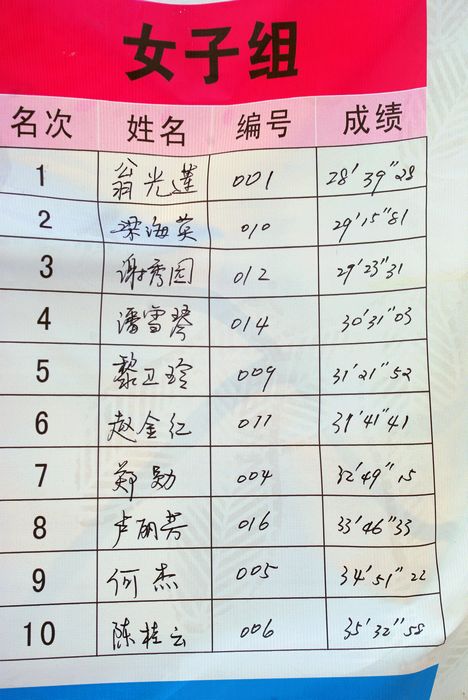 女子组
名次 姓名 编号 成绩
1 翁光莲 001 28'39"28
2 梁海英 010 29'15"81
3 谢秀园 012 29'23"31
4 潘雪琴 014 30'31"03
5 黎卫玲 009 31'21"52
6 赵金仁 011 31'41"41
7 郑勋 004 32'49"15
8 卢丽芳 016 33'46"33
9 何杰 005 34'51"22
10 陈桂云 006 35'32"58